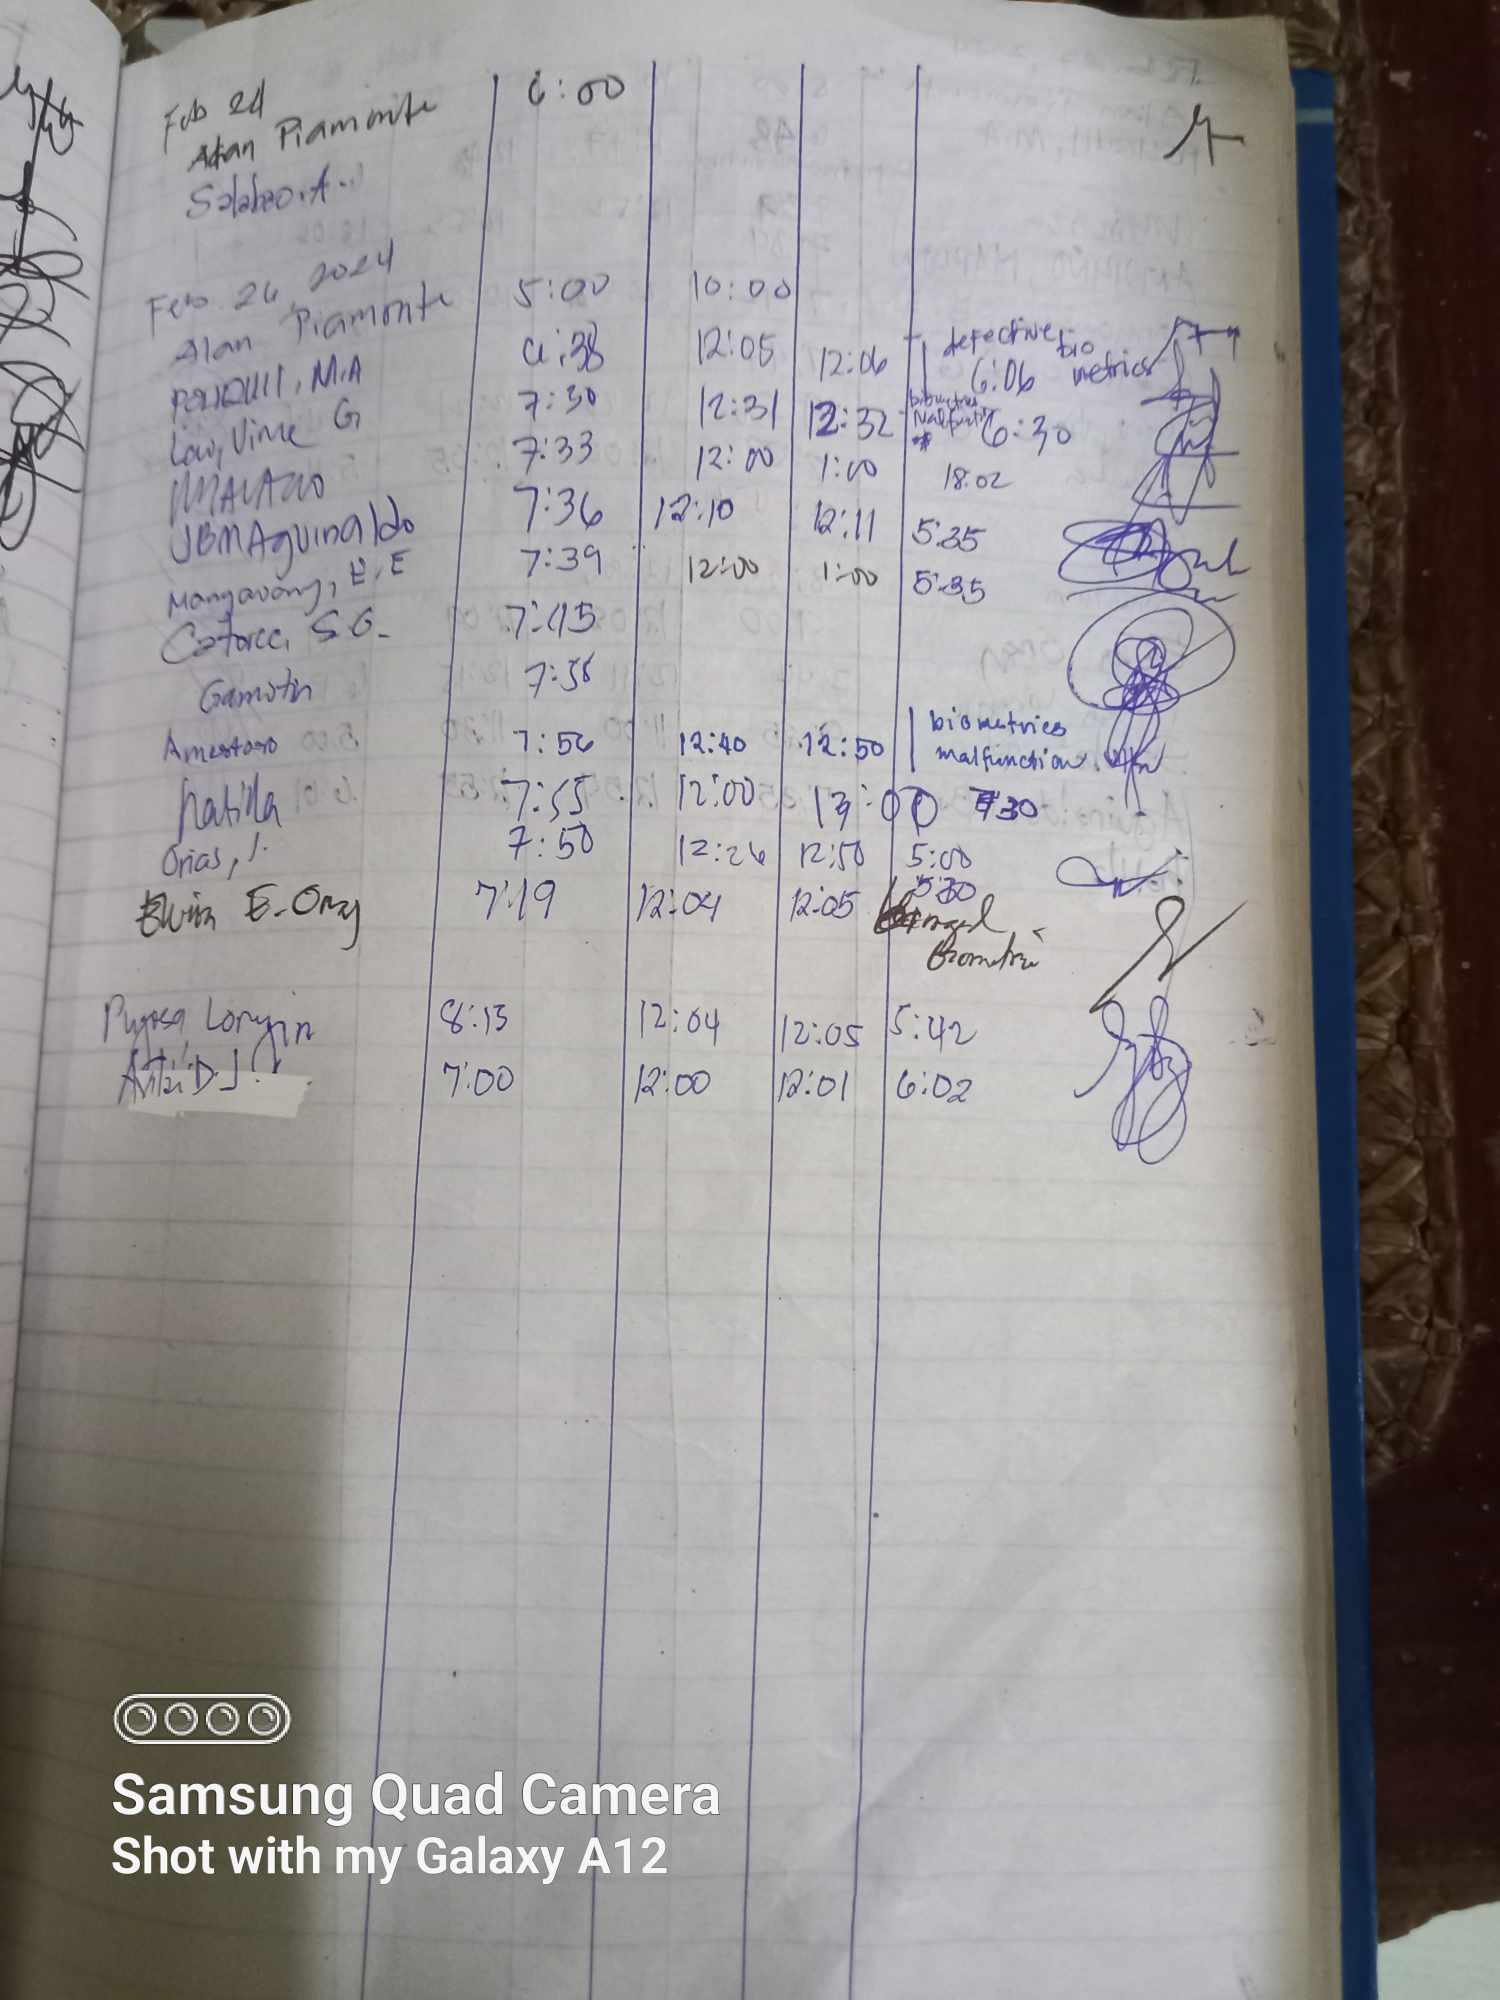 Feb 24
Alan Piamonte 6:00
Salabao. A.
Feb 26, 2024
Alan Piamonte 5:00 10:00
M.A 6:38 12:05 12:06 defective bio metrics 6:06
Low, Vime G 7:30 12:31 12:32 biometrics malfunction 6:30
7:33 12:00 1:00 18:02
JBMAguinaldo 7:36 12:10 12:11 5:35
E.E 7:39 12:00 1:00 5:35
Catorce, S.G. 7:45
Gamotin 7:58
Amestoso 7:56 12:40 12:50 biometrics malfunction
7:55 12:00 13:00 7:30
Orias, J. 7:50 12:26 12:50 5:00
Elwin E. Oray 7:19 12:04 12:05 5:30
Longin 8:13 12:04 12:05 5:42
D.J. 7:00 12:00 12:01 6:02
Samsung Quad Camera
Shot with my Galaxy A12